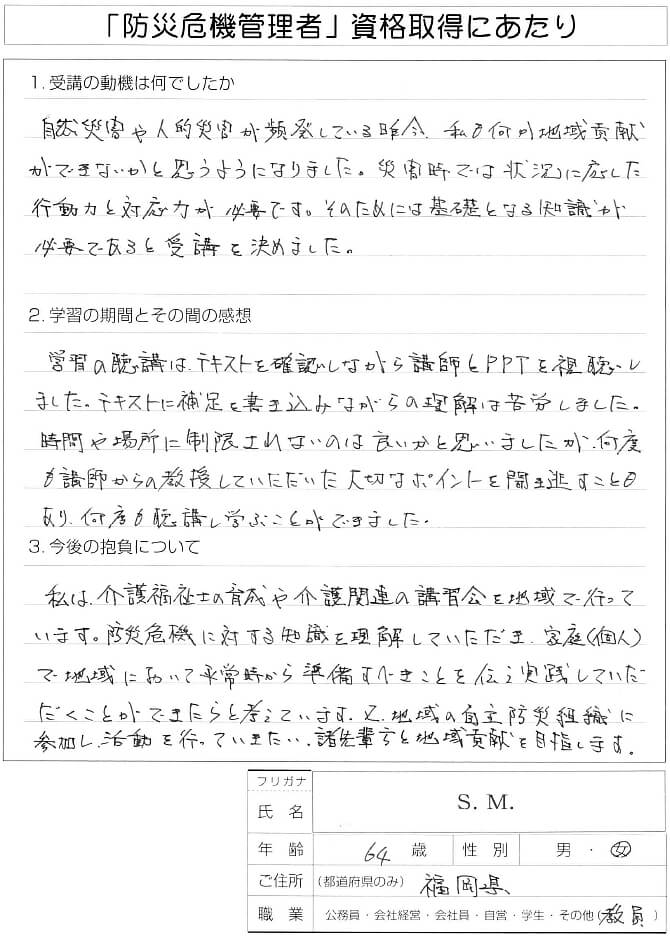 「防災危機管理者」資格取得にあたり
1. 受講の動機は何でしたか
自然災害や人的災害が頻発している昨今、私も何か地域貢献
ができないかと思うようになりました。災害時では状況に応した
行動力と対応力が必要です。そのためには基礎となる知識が
必要であると受講を決めました。
2. 学習の期間とその間の感想
学習の聴講は、テキストを確認しながら講師とPPTを視聴し
ました。テキストに補足を書き込みながらの理解は苦労しました。
時間や場所に制限されないのは良いかと思いましたが、何度
も講師からの教授していただいた大切なポイントを聞き逃すことも
あり、何度も聴講し学ぶことができました。
3. 今後の抱負について
私は、介護福祉士の育成や介護関連の講習会を地域で行って
います。防災危機に対する知識を理解していただき、家庭(個人)
で地域において平常時から準備すべきことを伝え実践していた
だくことができたらと考えています。又、地域の自立防災組織に
参加し、活動を行っていきたい。諸先輩方と地域貢献を目指します。
フリガナ
氏名 S. M.
年齢 64 歳 性別 男・女
ご住所 (都道府県のみ) 福岡県
職業 公務員・会社経営・会社員・自営・学生・その他(教員)